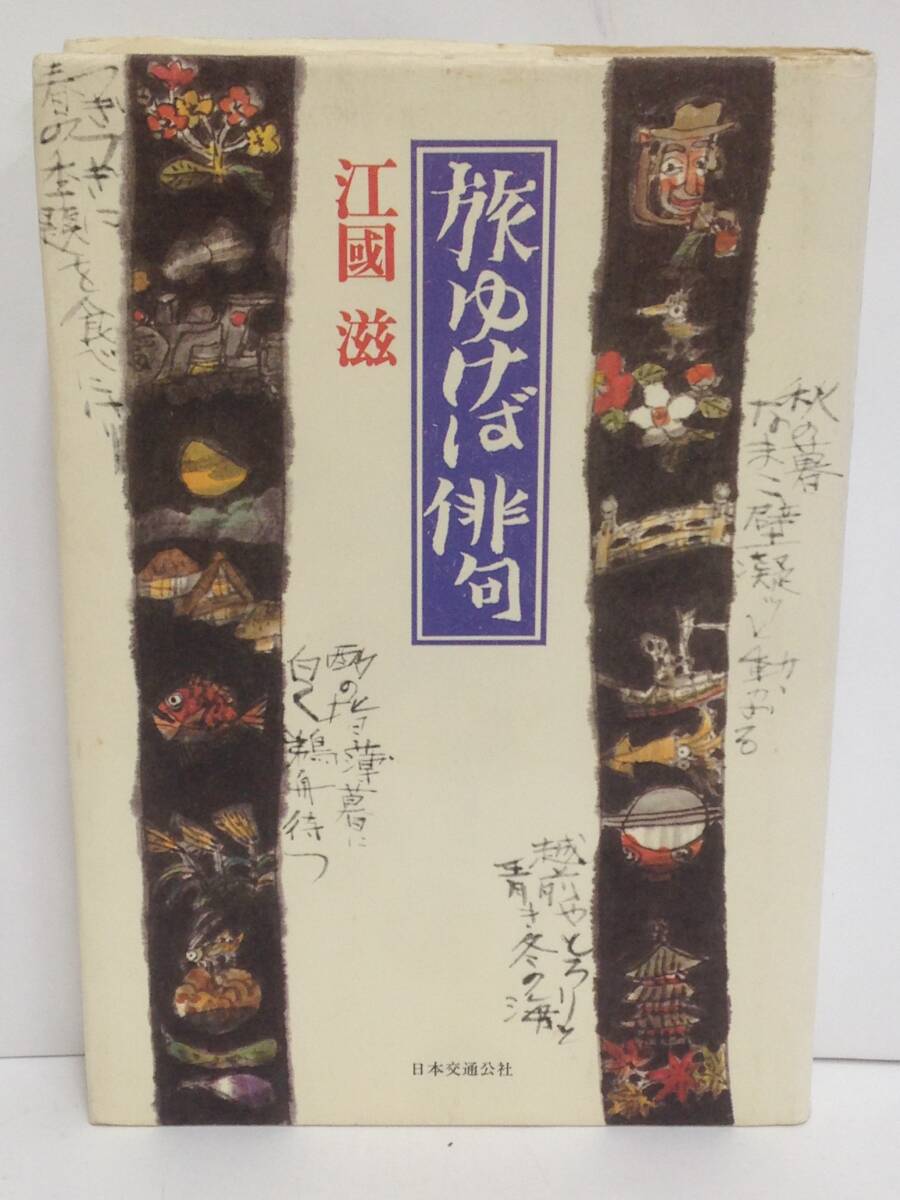 旅ゆけば俳句
江國 滋
秋の暮
なまこ壁凝ッと動かざる
越前やとろりと
青き冬の海
酌のひと薄暮に
白く鵜舟待つ
つぎつぎに
春の主題を食べにけり
日本交通公社